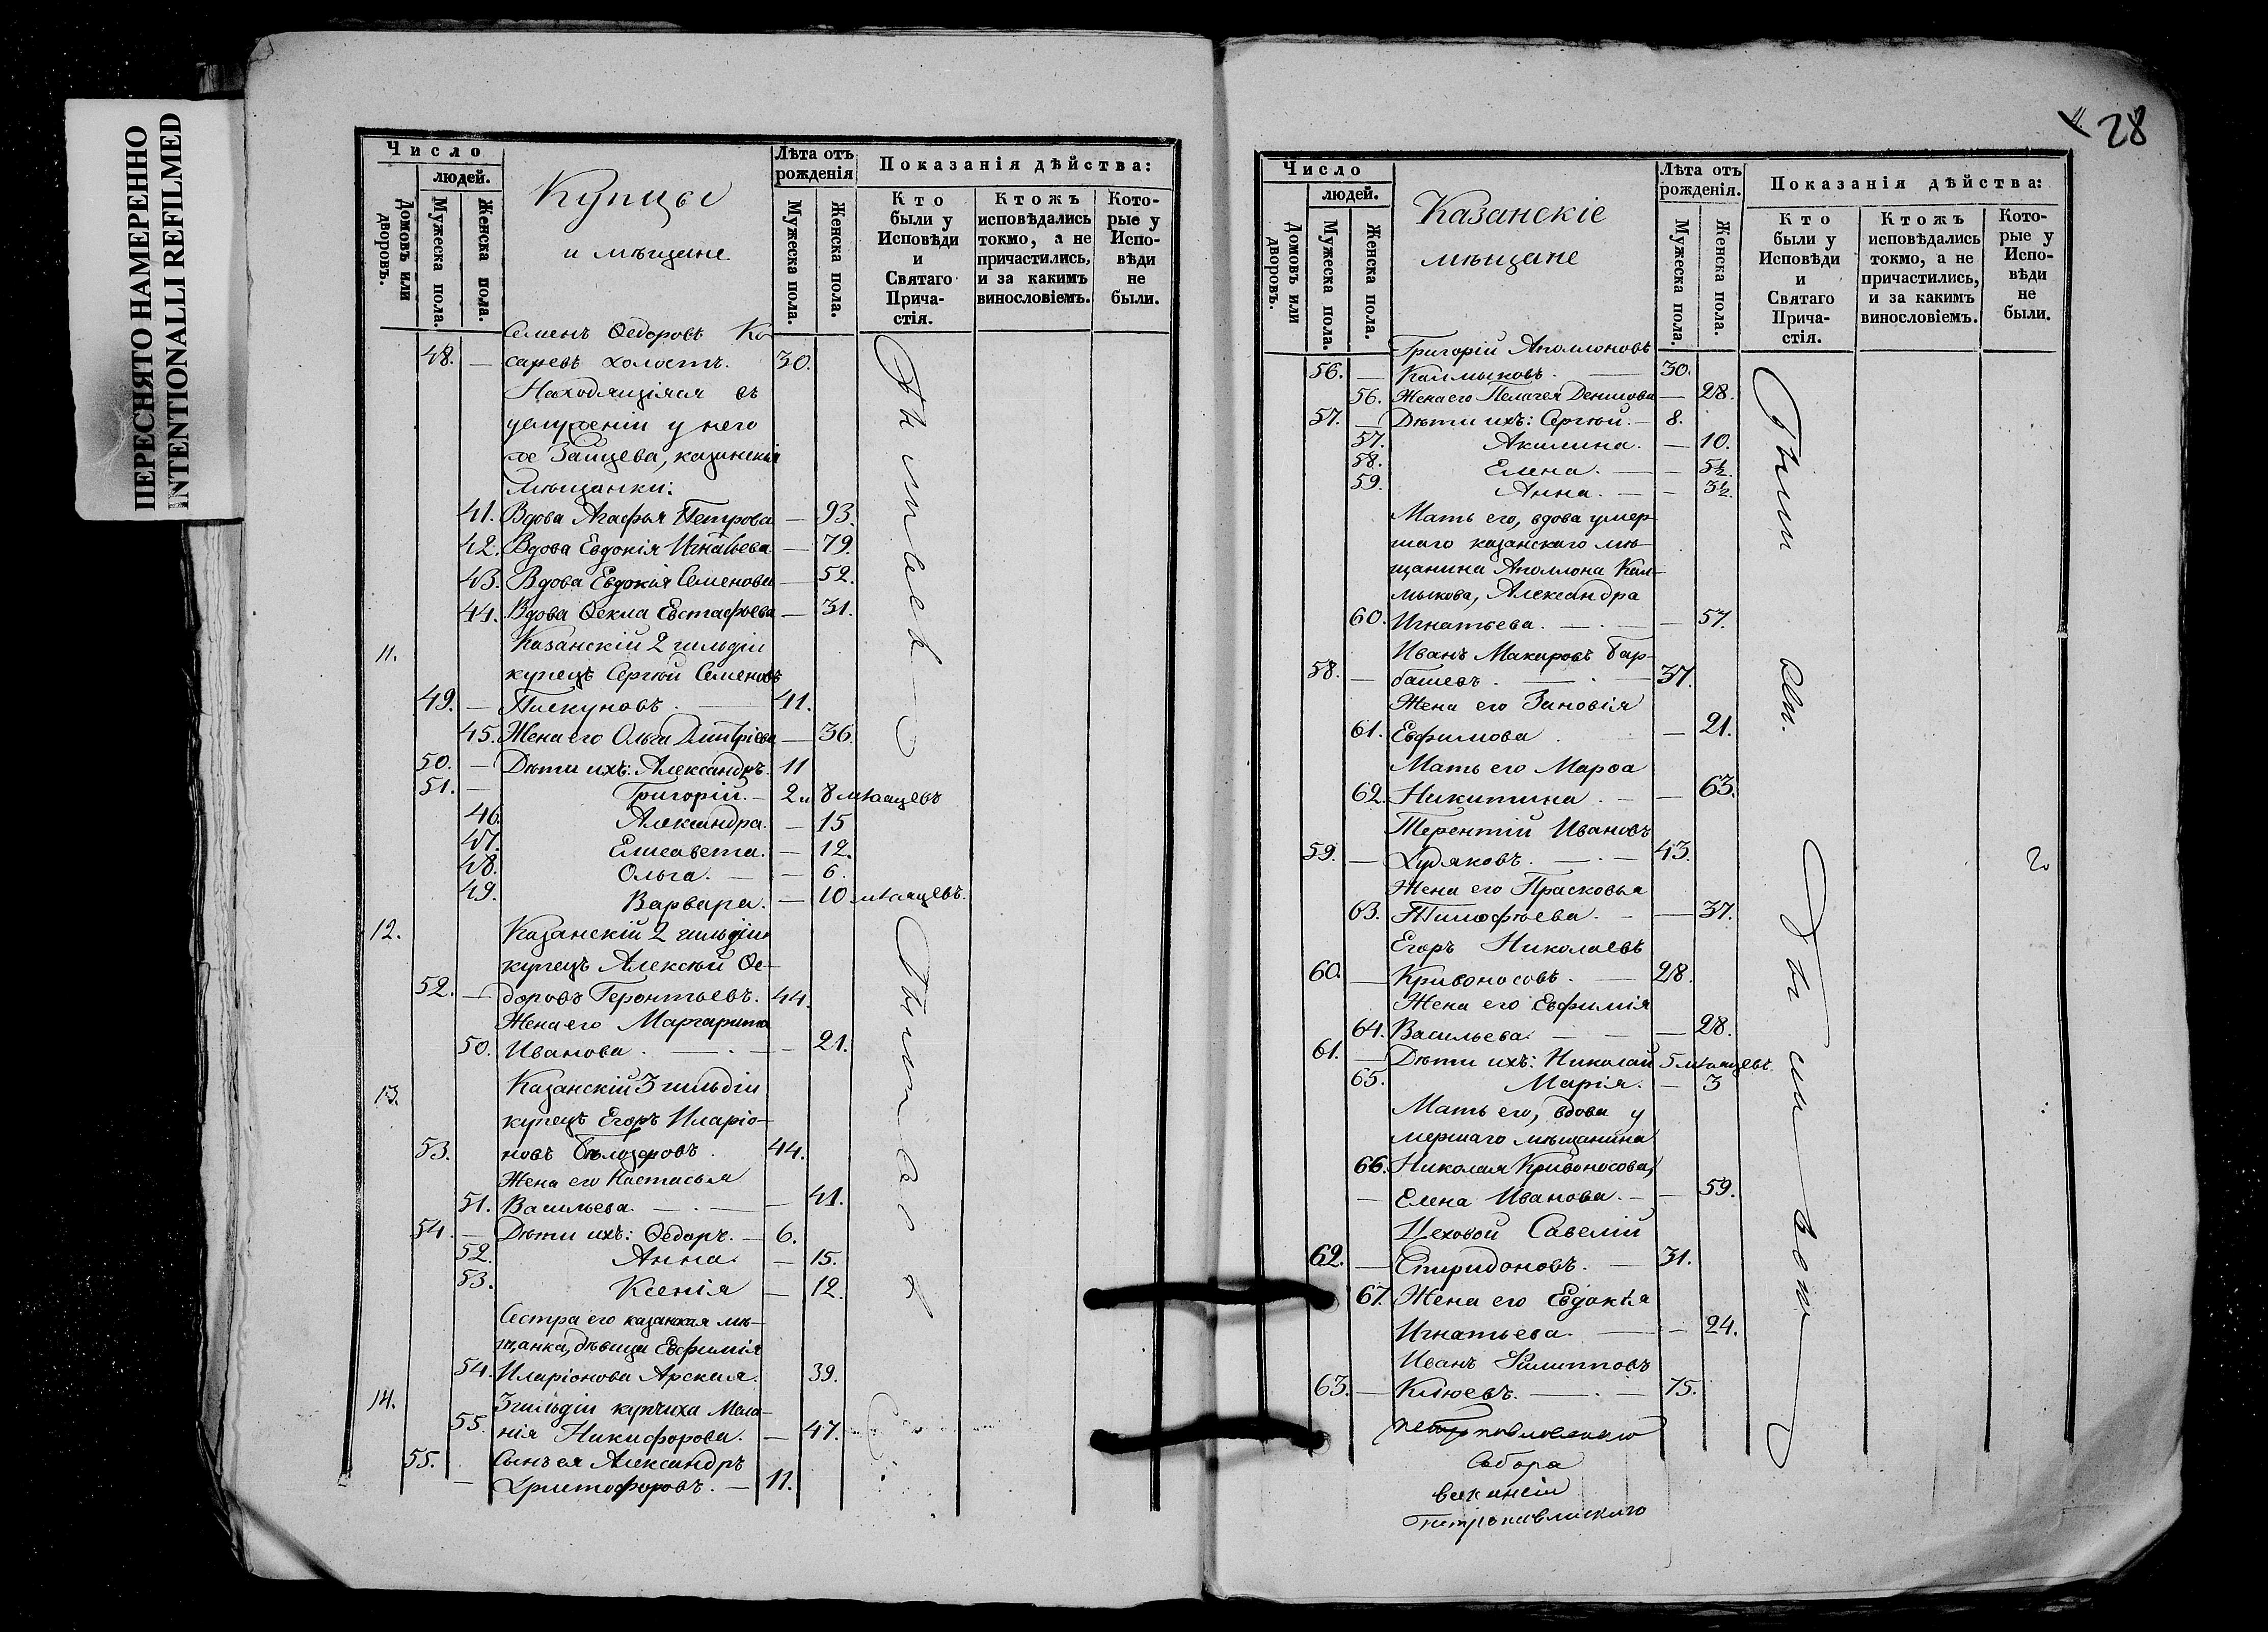 ПЕРЕСНЯТО НАМЕРЕННО
INTENTIONALLI REFILMED
Число
людей.
Домовъ или дворовъ.
Мужеска пола.
Женска пола.
Купцы
и мѣщане
Лѣта отъ рожденія
Мужеска пола.
Женска пола.
Показанія дѣйства:
Кто были у Исповѣди и Святаго Прича-стія.
Ктожъ исповѣдались токмо, а не причастились, и за какимъ винословіемъ.
Кото-рые у Испо-вѣди не были.
Семенъ Ѳедоровъ Ко-
48. — саревъ холостъ. 30.
Находящіяся въ
услуженіи у него
же Зайцева, казанскія
мѣщанки:
41. Вдова Агафья Петрова — 93.
42. Вдова Евдокія Игнатьева — 79.
43. Вдова Евдокія Семенова — 52.
44. Вдова Ѳекла Евстафьева — 31.
11. Казанскій 2 гильдіи
купецъ Сергѣй Семеновъ
49. — Пискуновъ. — 41.
45. Жена его Ольга Дмитріева — 36.
50. — Дѣти ихъ: Александръ. 11
51. — Григорій. — 2 и 8 мѣсяцевъ
46. Александра. — 15
47. Елисавета. — 12.
48. Ольга. — — 6.
49. Варвара. — 10 мѣсяцевъ.
12. Казанскій 2 гильдіи
купецъ Алексѣй Ѳе-
52. — доровъ Геронтьевъ. 44.
Жена его Маргарита
50. Иванова. — . — — 21.
13. Казанскій 3 гильдіи
купецъ Егоръ Иларіо-
53. новъ Бѣлозеровъ. 44.
Жена его Настасья
51. Васильева. — . — — 41.
54. — Дѣти ихъ: Ѳедоръ. — 6.
52. Анна. — 15.
53. Ксенія — 12.
Сестра его казанская мѣ-
щанка, дѣвица Евфимія
54. Иларіонова Арская. 39.
14. 3 гильдіи купчиха Мела-
55. нія Никифорова. — 47.
55. Сынъ ея Александръ
— Христофоровъ. — 11.
28
Число
людей.
Домовъ или дворовъ.
Мужеска пола.
Женска пола.
Казанскіе
мѣщане
Лѣта отъ рожденія.
Мужеска пола.
Женска пола.
Показанія дѣйства:
Кто были у Исповѣди и Святаго Прича-стія.
Ктожъ исповѣдались токмо, а не причастились, и за какимъ винословіемъ.
Кото-рые у Испо-вѣди не были.
Григорій Аполлоновъ
56. — Калмыковъ. — 30.
56. Жена его Пелагея Денисова — 28.
57. — Дѣти ихъ: Сергѣй. — 8.
57. Акилина. — 10.
58. Елена. — — 5½.
59. Анна. — — 3½.
Мать его, вдова умер-
шаго казанскаго мѣ-
щанина Аполлона Кал-
мыкова, Александра
60. Игнатьева. — . — — 57.
Иванъ Макаровъ Бар-
58. — башевъ. — . — 37.
Жена его Зиновія
61. Евфимова. — 21.
Мать его Марѳа
62. Никитина. — — 63.
Терентій Ивановъ
59. — Худяковъ. — . — 43.
Жена его Прасковья
63. Тимофѣева. — — 37.
Егоръ Николаевъ
60. — Кривоносовъ. — 28.
Жена его Евфимія
64. Васильева. — — — 28.
61. — Дѣти ихъ: Николай 5 мѣсяцевъ.
65. Марія. — 3
Мать его, вдова у
мершаго мѣщанина
66. Николая Кривоносова,
— Елена Иванова. — — 59.
Цеховой Савелій
62. — Спиридоновъ. — 31.
67. Жена его Евдокія
Игнатьева. — — 24.
Иванъ Филипповъ
63. — Клюевъ. — . — 75.
Были
2
Петропавловскаго
Собора
Петропавловскаго